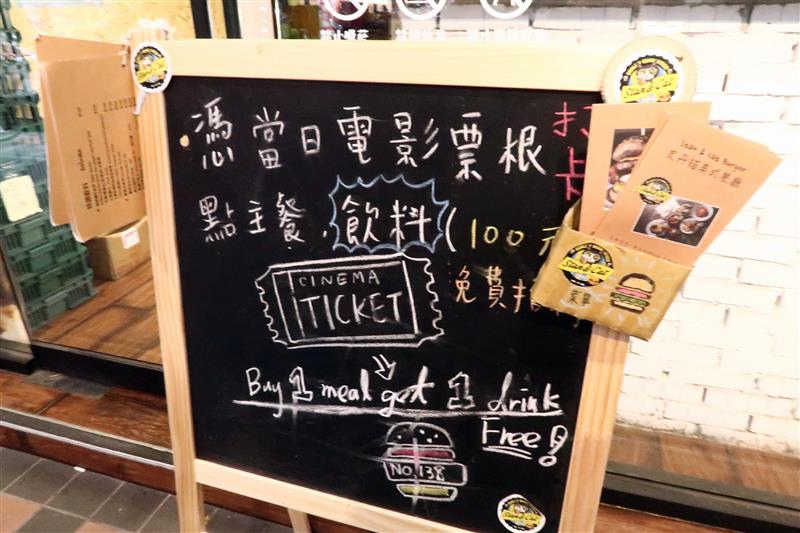 憑當日電影票根 打卡
點主餐,飲料(100元
CINEMA
TICKET
免費
Buy 1 meal get 1 drink
Free!
NO.138
Stan & Cat
Stan & Cat Burger
史丹貓美式餐廳
Stan & Cat